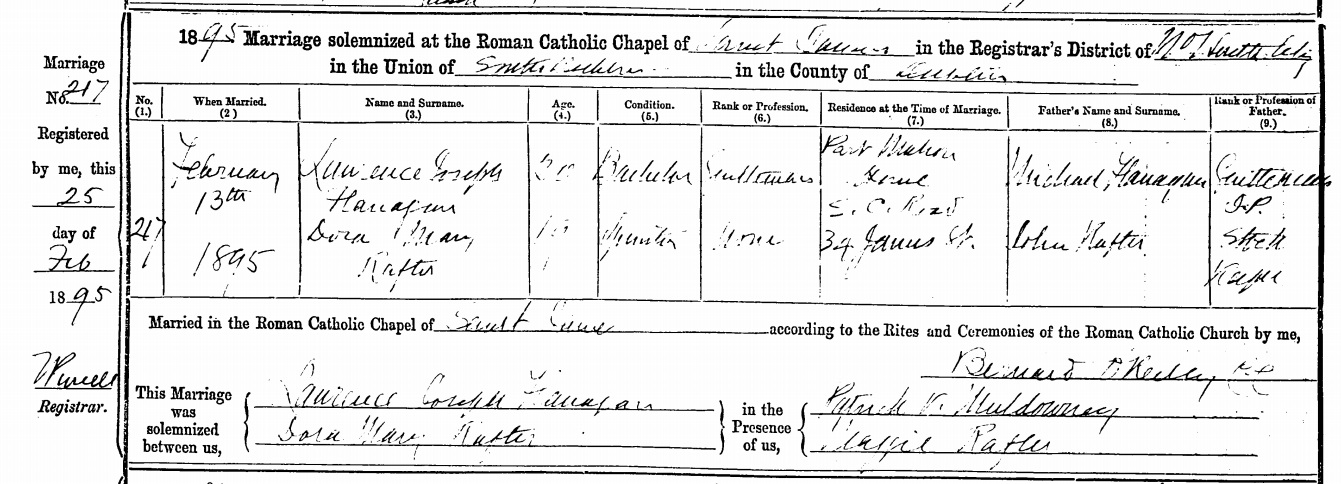 1895 Marriage solemnized at the Roman Catholic Chapel of Saint James in the Registrar's District of No 1 South City
in the Union of South Dublin in the County of Dublin
Marriage
No. 217
Registered
by me, this
25
day of
Feb
1895
Registrar.
No. (1.) When Married. (2) Name and Surname. (3.) Age. (4.) Condition. (5.) Rank or Profession. (6.) Residence at the Time of Marriage. (7.) Father's Name and Surname. (8.) Rank or Profession of Father. (9.)
217
February
13th
1895
Laurence Joseph
Flanagan
30 Bachelor Gentleman
House
S. C. Road
Michael Flanagan Gentleman
J.P.
Dora Mary
Rafter
Spinster None 34 James St. John Rafter
Keeper
Married in the Roman Catholic Chapel of Saint James according to the Rites and Ceremonies of the Roman Catholic Church by me,
Bernard O'Reilly
This Marriage
was
solemnized
between us,
Laurence Joseph Flanagan
Dora Mary Rafter
in the
Presence
of us,
Patrick V. Muldowney
Maggie Rafter